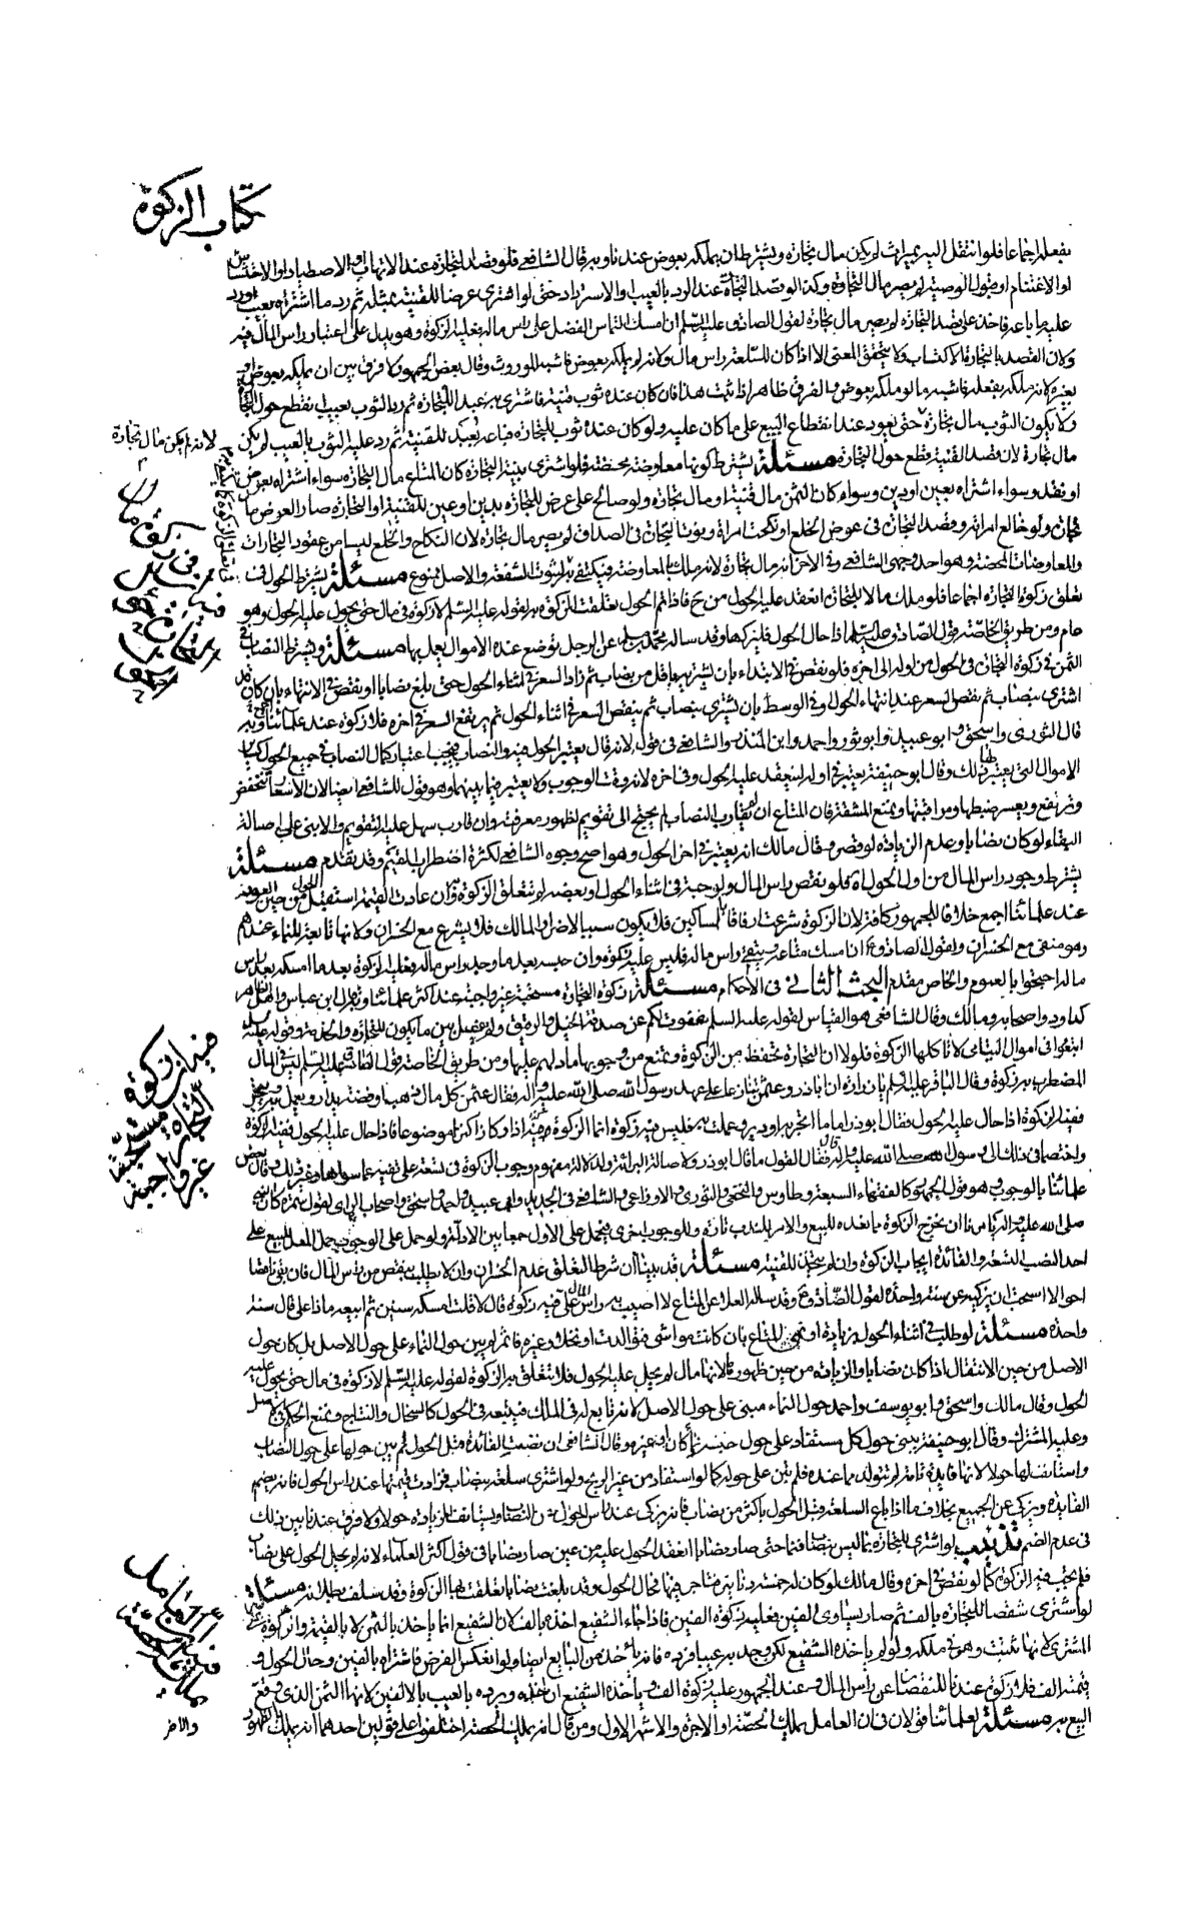 كتاب الزكوة
بفعله اجماعا فلو انتقل اليه بميراث لم يكن مال تجارة ويشترط ان يملكه بعوض عندنا وبه قال الشافعي فلو قصد التجارة عند الاتهاب او الاصطياد او الاحتشاش
او الاغتنام او قبول الوصية لم يصر مال التجارة وكذا لو قصد التجارة عند الرد بالعيب والاسترداد حتى لو اشترى عرضا للقنية بمثله ثم رد ما اشتراه بعيب او رد
عليه ما باعه فاخذه على قصد التجارة لم يصر مال تجارة لقول الصادق عليه السلم ان امسك التماس الفضل على راس ماله فعليه الزكوة وهو يدل على اعتبار راس المال فيه
ولان القصد بالتجارة الاكتساب ولا يتحقق المعنى الا اذا كان للسلعة راس مال ولانه لم يملكه بعوض فاشبه الموروث وقال بعض الجمهور لا فرق بين ان يملكه بعوض او
بغيره لانه ملكه بفعله فاشبه ما لو ملكه بعوض والفرق ظاهر اذا ثبت هذا فان كان عنده ثوب قنية فاشترى به عبدا للتجارة ثم رد الثوب بعيب انقطع حول التجارة
ولا يكون الثوب مال تجارة حتى يعود عند انقطاع البيع على ما كان عليه ولو كان عنده ثوب للتجارة فباعه بعبد للقنية ثم رد عليه الثوب بالعيب لم يكن
مال تجارة لان قصد القنية قطع حول التجارة مسئلة يشترط كونها معاوضة محضة فلو اشترى بنية التجارة كان المتاع مال التجارة سواء اشتراه بعرض
او نقد وسواء اشتراه بعين او دين وسواء كان الثمن مال قنية او مال تجارة ولو صالح على عرض للتجارة بدين او عين للقنية او التجارة صار العوض مال
تجارة ولو خالع امراته وقصد التجارة في عوض الخلع او نكحت امراة ونوت التجارة في الصداق لم يصر مال تجارة لان النكاح والخلع ليسا من عقود التجارات
والمعاوضات المحضة وهو احد وجهي الشافعي وفي الاخر انه مال تجارة لانه ملك بالمعاوضة فيكتفى به لثبوت الشفعة والاصل ممنوع مسئلة يشترط الحول في
تعلق زكوة التجارة اجماعا فلو ملك مالا للتجارة انعقد عليه الحول من ح فاذا تم الحول تعلقت الزكوة به لقوله عليه السلم لا زكوة في مال حتى يحول عليه الحول وهو
عام ومن طريق الخاصة قول الصادق عليه السلم اذا حال الحول فليزكها وقد ساله محمد بن مسلم عن الرجل توضع عنده الاموال يعمل بها مسئلة ويشترط النصاب في
الثمن في زكوة التجارة في الحول من اوله الى اخره فلو نقص في الابتداء بان يشتريه باقل من نصاب ثم زاد السعر في اثناء الحول حتى بلغ نصابا او نقص في الانتهاء بان كان قد
اشترى بنصاب ثم نقص السعر عند انتهاء الحول او في الوسط بان يشتري بنصاب ثم ينقص السعر في اثناء الحول ثم يرتفع السعر في اخره فلا زكوة عند علمائنا اجمع وبه
قال الثوري واسحق و ابو عبيد وابو ثور واحمد وابن المنذر والشافعي في قول لانه مال يعتبر له الحول والنصاب فيجب اعتبار كمال النصاب في جميع الحول كسائر
الاموال التي يعتبر فيها ذلك وقال ابو حنيفة يعتبر في اوله لينعقد عليه الحول وفي اخره لانه وقت الوجوب ولا يعتبر فيما بينهما وهو قول للشافعي ايضا لان الاسعار تنخفض
وترتفع ويعسر ضبطها ومراقبتها ونمنع المشقة فان المتاع ان لم يقارب النصاب لم يحتج الى تقويم لظهور معرفته وان قارب سهل عليه التقويم والا بنى على اصالة
البقاء لو كان نصابا وعدم الزيادة لو قصر و قال مالك انه يعتبر في اخر الحول وهو اصح وجوه الشافعي لكثرة اضطراب القيم وقد تقدم مسئلة
يشترط وجود راس المال من اول الحول الى اخره فلو نقص راس المال ولو حبة في اثناء الحول او بعضه لم تتعلق الزكوة به وان عادت القيمة استقبل الحول من حين العود
عند علمائنا اجمع خلافا للجمهور كافة لان الزكوة شرعت ارفاقا بالمساكين فلا يكون سببا لاضرار المالك فلا يشرع مع الخسران ولانها تابعة للنماء عندهم
وهو منتف مع الخسران ولقول الصادق ع ان امسك متاعه ويبتغي راس ماله فليس عليه زكوة وان حبسه بعد ما وجد راس ماله فعليه الزكوة بعد ما امسكه بعد راس
ماله احتجوا بالعموم والخاص مقدم البحث الثاني في الاحكام مسئلة زكوة التجارة مستحبة غير واجبة عند اكثر علمائنا وبه قال ابن عباس واهل الظاهر
كداود واصحابه ومالك وقال الشافعي هو القياس لقوله عليه السلم عفوت لكم عن صدقة الخيل والرقيق ولم يفصل بين ما يكون للتجارة والخدمة وقوله عليه السلم
ابتغوا في اموال اليتامى لا تاكلها الزكوة فلولا ان التجارة تحفظ من الزكوة ونمنع من وجوبها ما دلهم عليها ومن طريق الخاصة قول الصادق عليه السلم ليس في المال
المضطرب به زكوة وقال الباقر عليه السلم يا زرارة ان ابا ذر وعثمن تنازعا على عهد رسول الله صلى الله عليه واله فقال عثمن كل مال من ذهب او فضة يدار ويعمل به ويتجر به
ففيه الزكوة اذا حال عليه الحول فقال ابو ذر اما ما اتجر به او دير وعمل به فليس فيه زكوة انما الزكوة فيه اذا كان ركازا كنزا موضوعا فاذا حال عليه الحول ففيه الزكوة
واختصما في ذلك الى رسول الله صلى الله عليه واله قال فقال القول ما قال ابو ذر ولاصالة البرائة ولدلالة مفهوم وجوب الزكوة في تسعة على نفيه عما سواها وغير ذلك وقال بعض
علمائنا بالوجوب وهو قول الجمهور كالفقهاء السبعة وطاوس والنخعي والثوري والاوزاعي والشافعي في الجديد وابي عبيد واحمد واسحق واصحاب الراي لقول سمرة كان النبي
صلى الله عليه واله يامرنا ان نخرج الزكوة مما نعده للبيع والامر للندب تارة وللوجوب اخرى فيحمل على الاول جمعا بين الادلة ولو حمل على الوجوب حمل المعد للبيع على
احد النصب التسعة والفائدة ايجاب الزكوة وان لم يتخذ للقنية مسئلة قد بينا ان شرط التعلق عدم الخسران وان لا يطلب بنقص من راس المال فان بقي ناقصا
احوالا استحب ان يزكيه عن سنة واحدة لقول الصادق ع وقد ساله العلا عن المتاع لا اصيب به راس المال علي فيه زكوة قال لا قلت امسكه سنين ثم ابيعه ماذا علي قال سنة
واحدة مسئلة لو طلب في اثناء الحول بزيادة او نتج المتاع بان كانت مواشي فتوالدت او نخل وغيره فاثمر لم يبن حول النماء على حول الاصل بل كان حول
الاصل من حين الانتقال اذا كان نصابا والزيادة من حين ظهورها لانها مال لم يحل عليه الحول فلا تتعلق به الزكوة لقوله عليه السلم لا زكوة في مال حتى يحول عليه
الحول وقال مالك واسحق وابو يوسف واحمد حول النماء مبني على حول الاصل لانه تابع له في الملك فيتبعه في الحول كالسخال والنتاج ونمنع الحكم في الاصل
وعلية المشترك وقال ابو حنيفة يبنى حول كل مستفاد على حول جنسه نماء كان او غيره وقال الشافعي ان نضت الفائدة قبل الحول لم يبن حولها على حول النصاب
واستانف لها حولا لانها فايدة تامة لم تتولد مما عنده فلم تبن على حوله كما لو استفاد من غير الربح ولو اشترى سلعة بنصاب فزادت قيمتها عند راس الحول فانه يضم
الفايدة ويزكي عن الجميع بخلاف ما اذا باع السلعة قبل الحول باكثر من نصاب فانه يزكي عند راس الحول عن النصاب ويستانف للزيادة حولا ولا فرق عندنا بين ذلك
في عدم الضم تذنيب لو اشترى للتجارة بما ليس بنصاب فنما حتى صار نصابا انعقد الحول عليه من حين صار نصابا في قول اكثر العلماء لانه لم يحل الحول على نصاب
فلم يجب فيه الزكوة كما لو نقص في اخره وقال مالك لو كان له خمسة دنانير فتاجر فيها فحال الحول وقد بلغت نصابا تعلقت بها الزكوة وقد سلف بطلانه مسئلة
لو اشترى شقصا للتجارة بالف ثم صار يساوي الفين فعليه زكوة الفين فاذا جاء الشفيع اخذه بالف لان الشفيع انما ياخذ بالثمن لا بالقيمة والزكوة على
المشتري لانها تثبت وهو في ملكه ولو لم ياخذه الشفيع لكن وجد به عيبا فرده فانه ياخذ من البايع الفا ولو انعكس الفرض فاشتراه بالفين وحال الحول و
قيمته الف فلا زكوة عندنا للنقصان عن راس المال و عند الجمهور عليه زكوة الف وياخذه الشفيع ان اخذه ويرده بالعيب بالالفين لانهما الثمن الذي وقع
البيع به مسئلة لعلمائنا قولان في ان العامل يملك الحصة او الاجرة والاشهر الاول ومن قال انه يملك الحصة اختلفوا على قولين احدهما انه يملك بالظهور
لانه لم يكن مال تجارة
في ان زكوة
التجارة مستحبة
غير واجبة
في ان العامل
يملك الحصة
والاخر